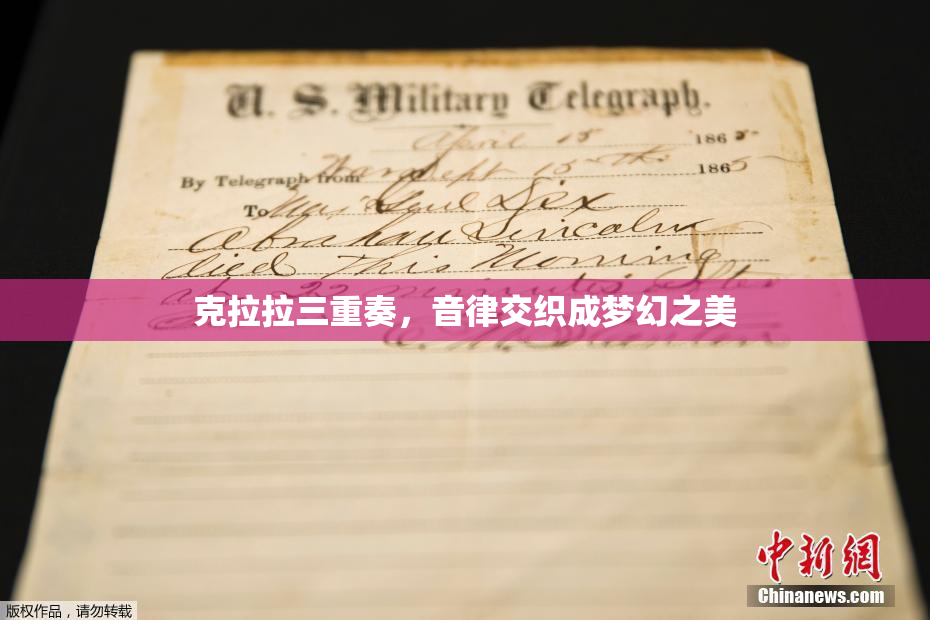 U. S. Military Telegraph.
April 15 1865
By Telegraph from War Dept 15th 1865
To Maj Genl Dix
Abraham Lincoln
died This Morning
at 22 minutes after
克拉拉三重奏，音律交织成梦幻之美
E. M. Stanton
中新网
Chinanews.com
版权作品，请勿转载